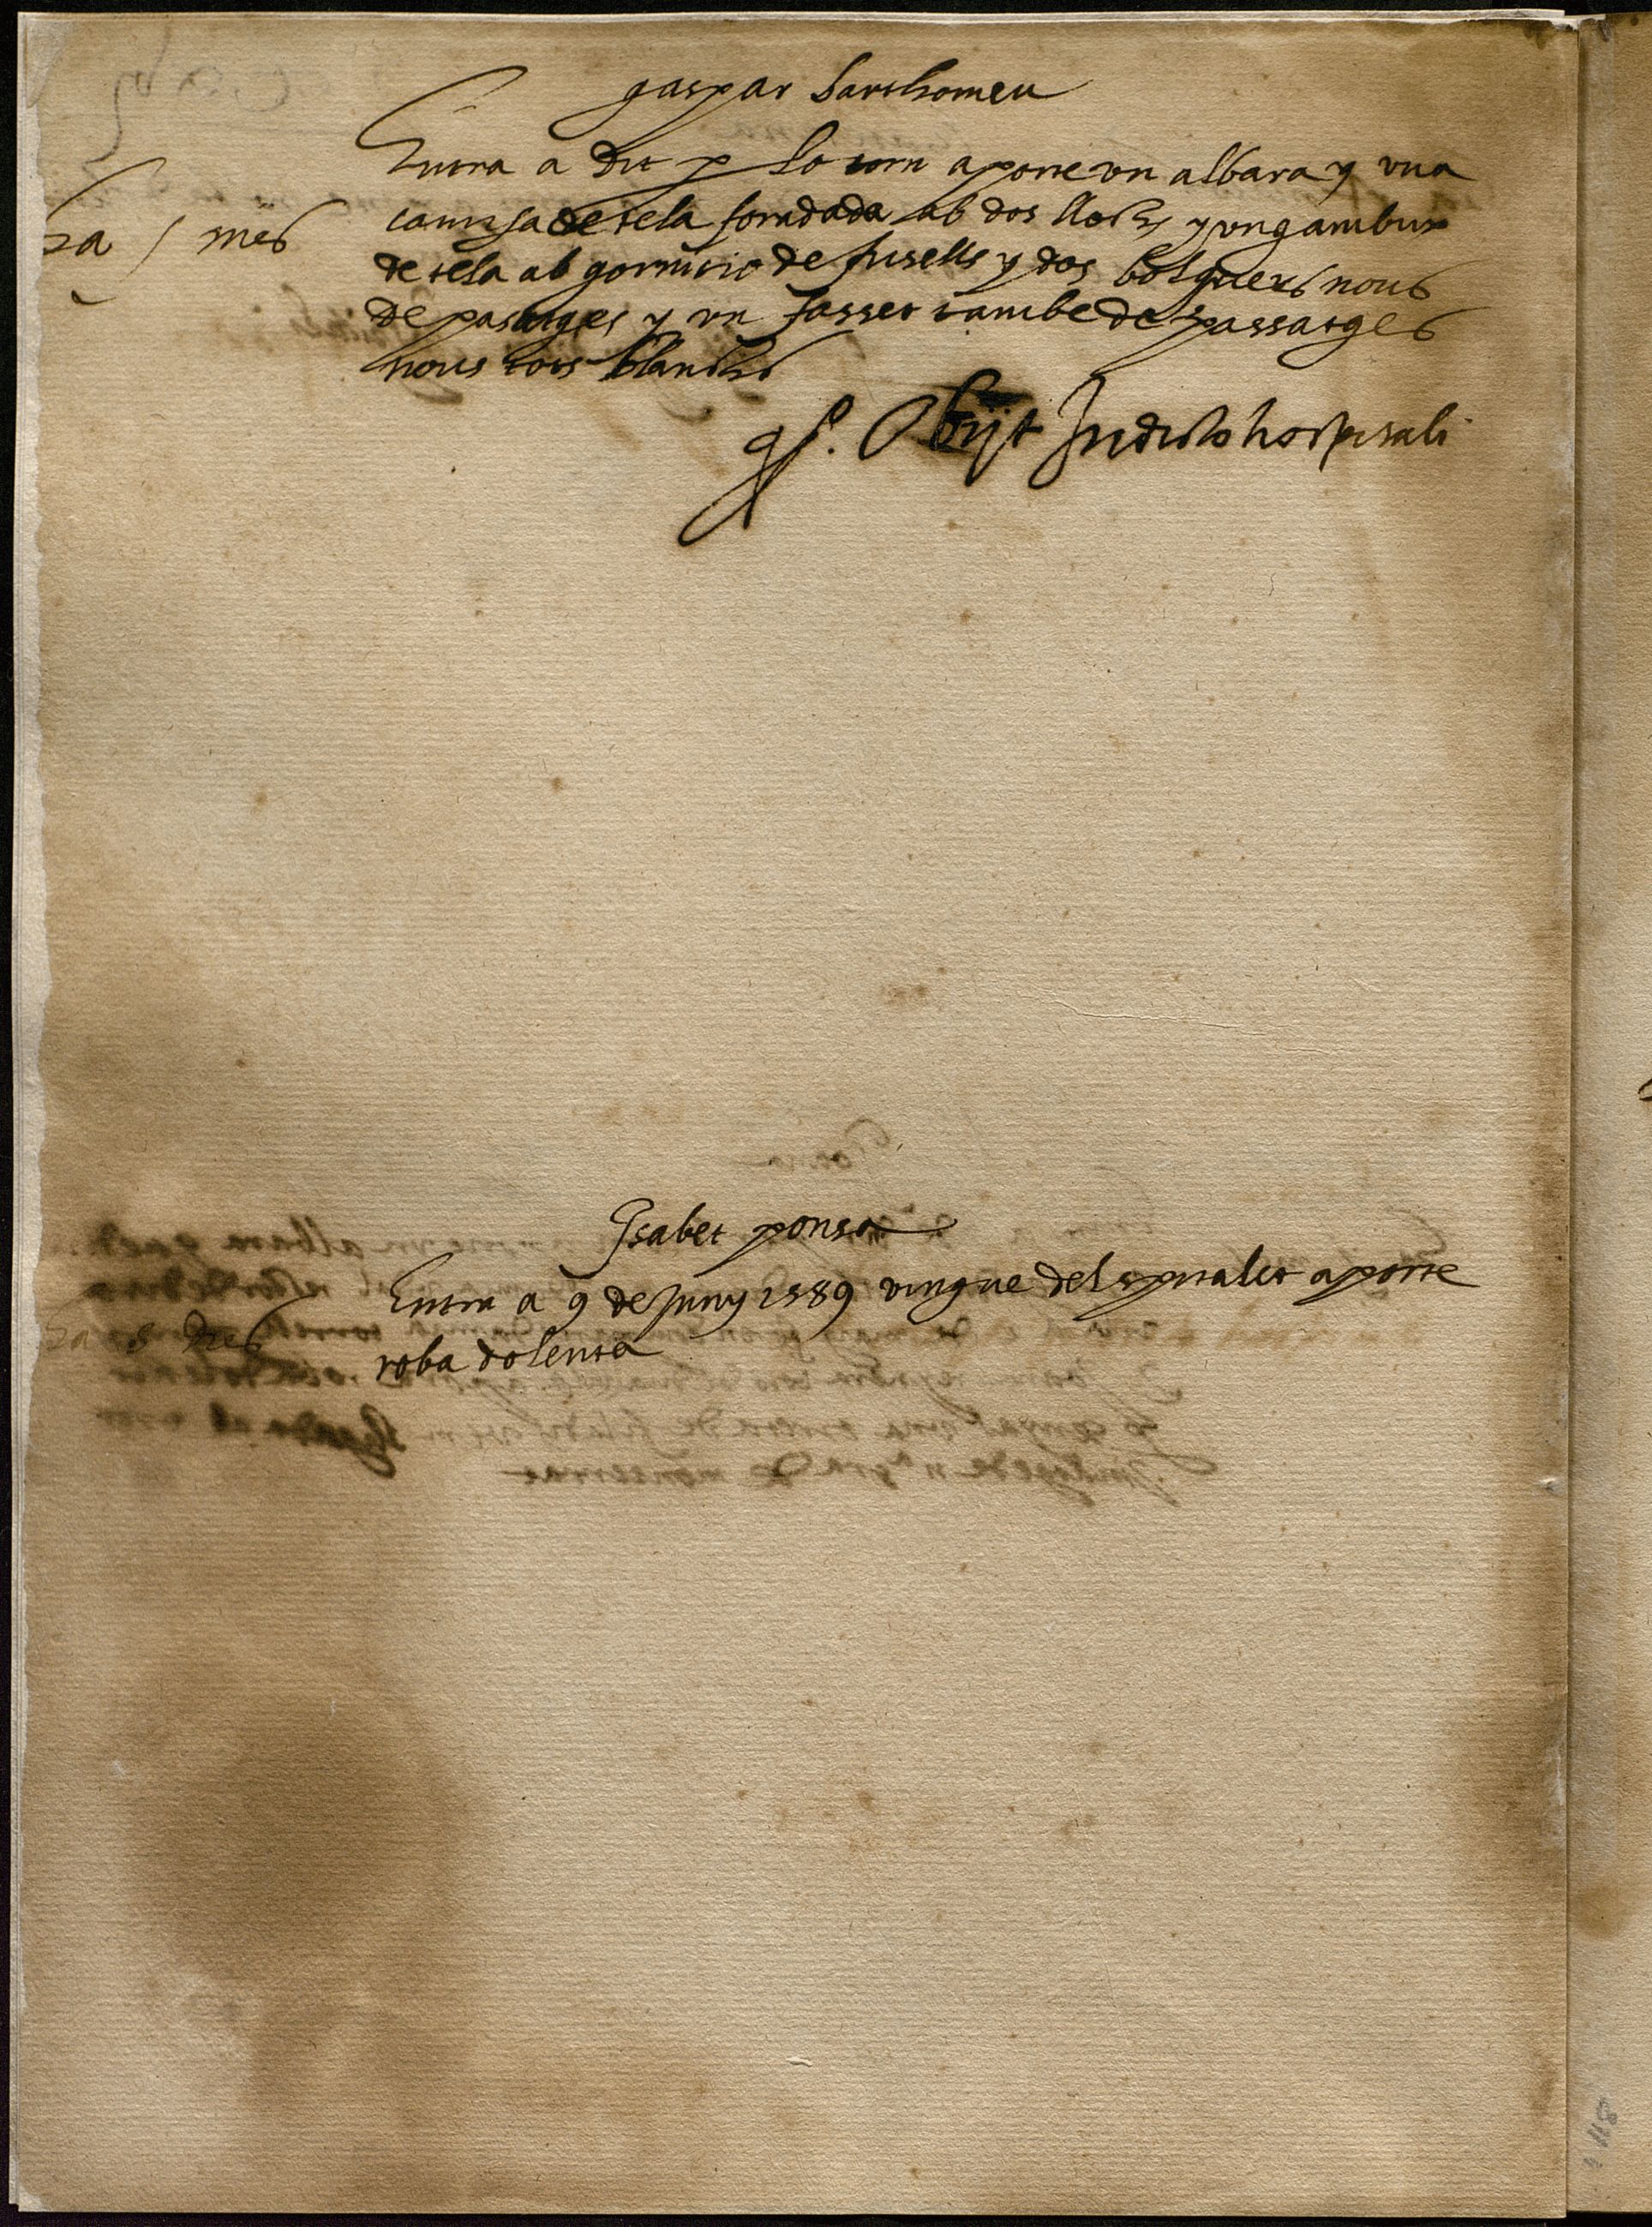 gaspar barthomeu
Entra a dit p lo torn aporte vn albara y vna
camisa de tela foradada ab dos llochs y vn gambux
de tela ab gornicio de fusells y dos bolquers nous
de pasatges y vn fasset tambe de passatges
nous tots blanchs
ta 1 mes
Obijt In dicto hospitali
Isabet ponsa
Entra a 9 de Juny 1589 vingue del spitalet aporte
roba dolenta
ta 8 dies